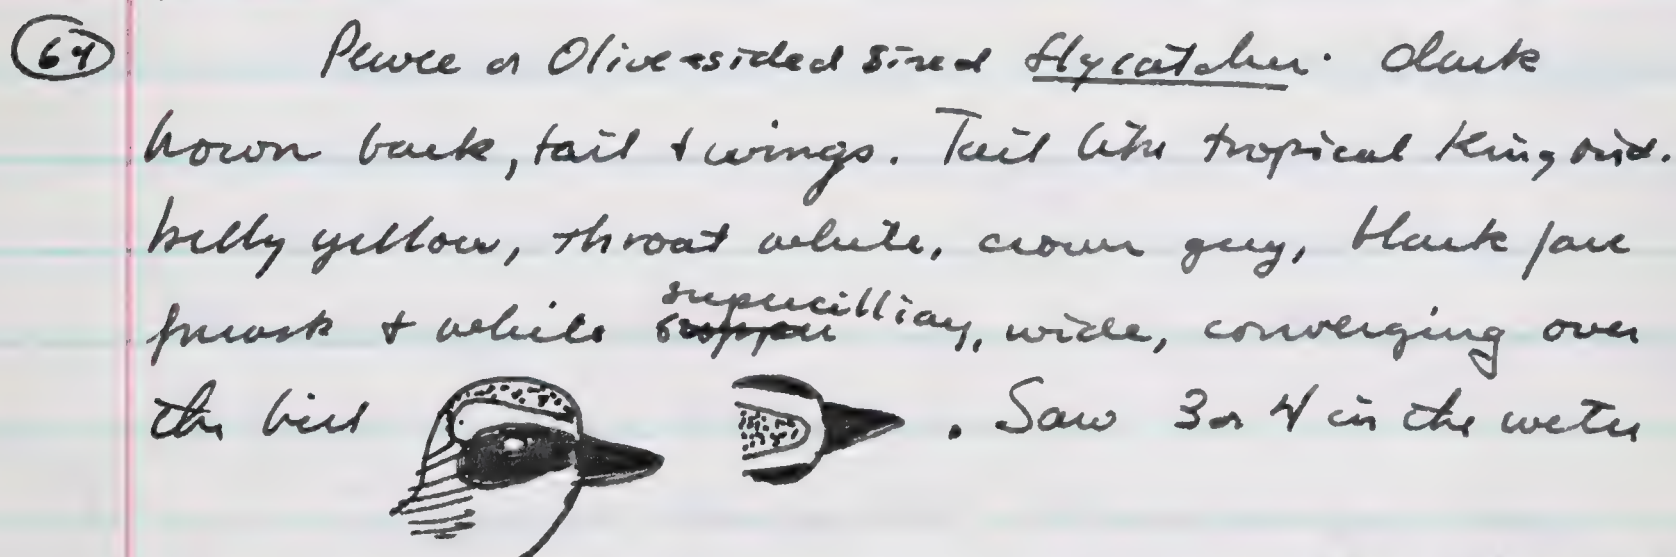 64 Pewee or Olive-sided sized flycatcher. Dark
brown back, tail + wings. Tail like tropical Kingbird.
belly yellow, throat white, crown grey, black face
& white supercilliary, wide, converging over
the bill. Saw 3 or 4 in the wetter